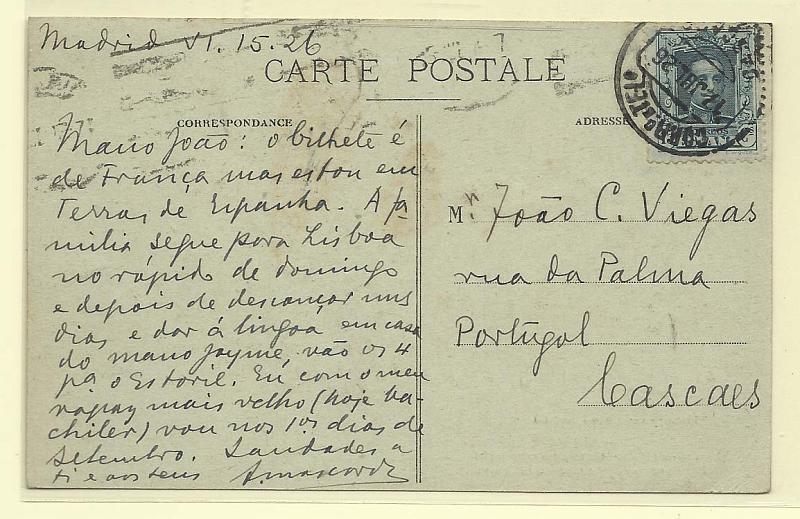 Madrid VI. 15. 26
CARTE POSTALE
CORRESPONDANCE
ADRESSE
Mano João: o bilhete é
de França mas estou em
Terras de Espanha. A fa
milia segue para Lisboa
no rápido de domingo
e depois de descançar uns
dias e dar á lingoá em casa
do mano Jayme, vão os 4
pª o Estoril. Eu com o meu
rapaz mais velho (hoje ba-
chiler) vou nos 1os dias de
Setembro. Saudades a
ti e aos teus
Mr João C. Viegas
rua da Palma
Portugol
Cascaes